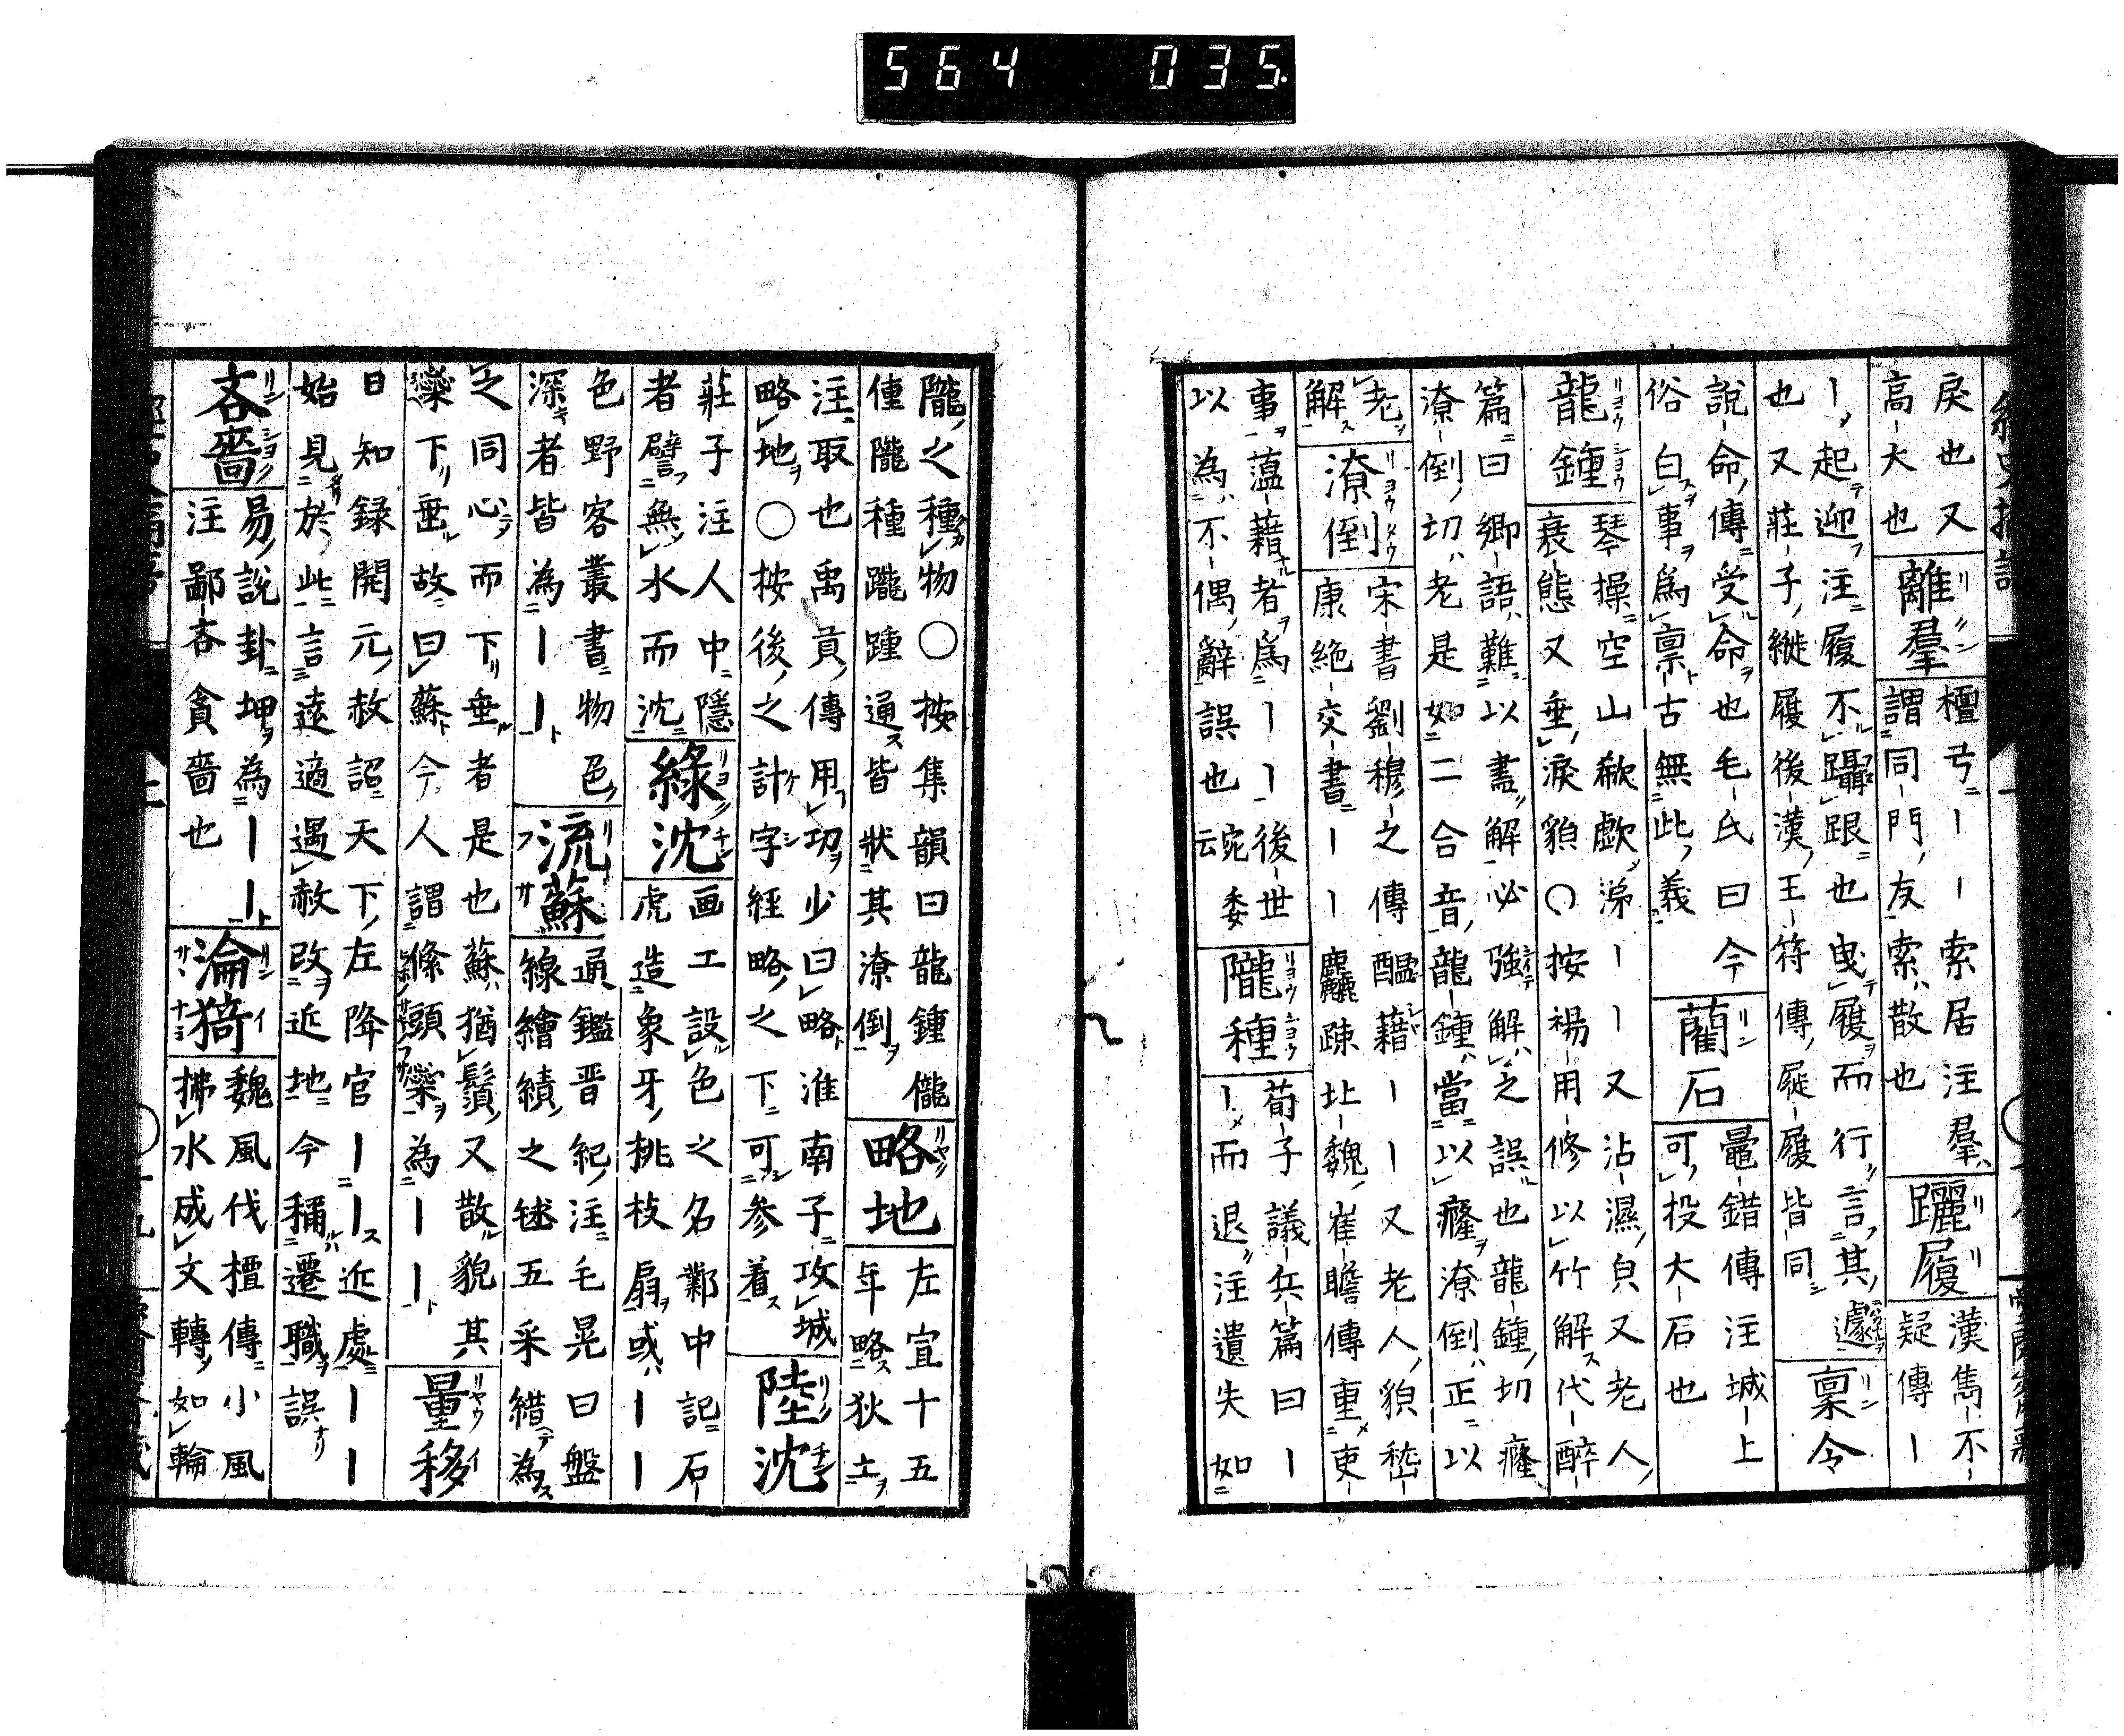 564 035
戾也又
高大也
離羣
檀弓｜｜索居注羣
謂同門友索散也
躧履
漢雋不
疑傳｜
｜起迎注履不躡跟也曳履而行言其遽
也又莊子縰履後漢王符傳屣履皆同
稟令
說命傳受命也毛氏曰今
俗白事爲稟古無此義
藺石
鼂錯傳注城上
可投大石也
龍鍾
琴操空山歔欷涕｜｜又沾濕皃又老人
衰態又垂淚貌○按楊用修以竹解代醉
篇曰鄉語難以書解必強解之誤也龍鍾切癃
潦倒切老是如二合音龍鍾當以癃潦倒正以
老
解
潦倒
宋書劉穆之傳醞藉｜｜又老人貌嵇
康絶交書｜｜麤疎北魏崔瞻傳重吏
事薀藉者爲｜｜後世
以為不偶辭誤也
隴種
荀子議兵篇曰｜
｜而退注遺失如
隴之種物○按集韻曰龍鍾儱
偅隴種躘踵通皆狀其潦倒
略地
左宣十五
年略狄土
注取也禹貢傳用功少曰略淮南子攻城
略地○按後之計字經略之下可参着
陸沈
莊子注人中隱
者譬無水而沈
綠沈
画工設色之名鄴中記石
虎造象牙桃枝扇或｜｜
色野客叢書物色
深者皆為｜｜
流蘇
通鑑晋紀注毛晃曰盤
線繪績之毬五采錯為
之同心而下垂者是也蘇猶鬚又散貌其
蘂下垂故曰蘇今人謂絛頭蘂為｜｜
量移
日知錄開元赦詔天下左降官｜｜近處｜｜
始見於此言遠適遇赦改近地今稱遷職誤
吝嗇
易說卦坤為｜｜
注鄙吝貪嗇也
淪猗
魏風伐檀傳小風
拂水成文轉如輪